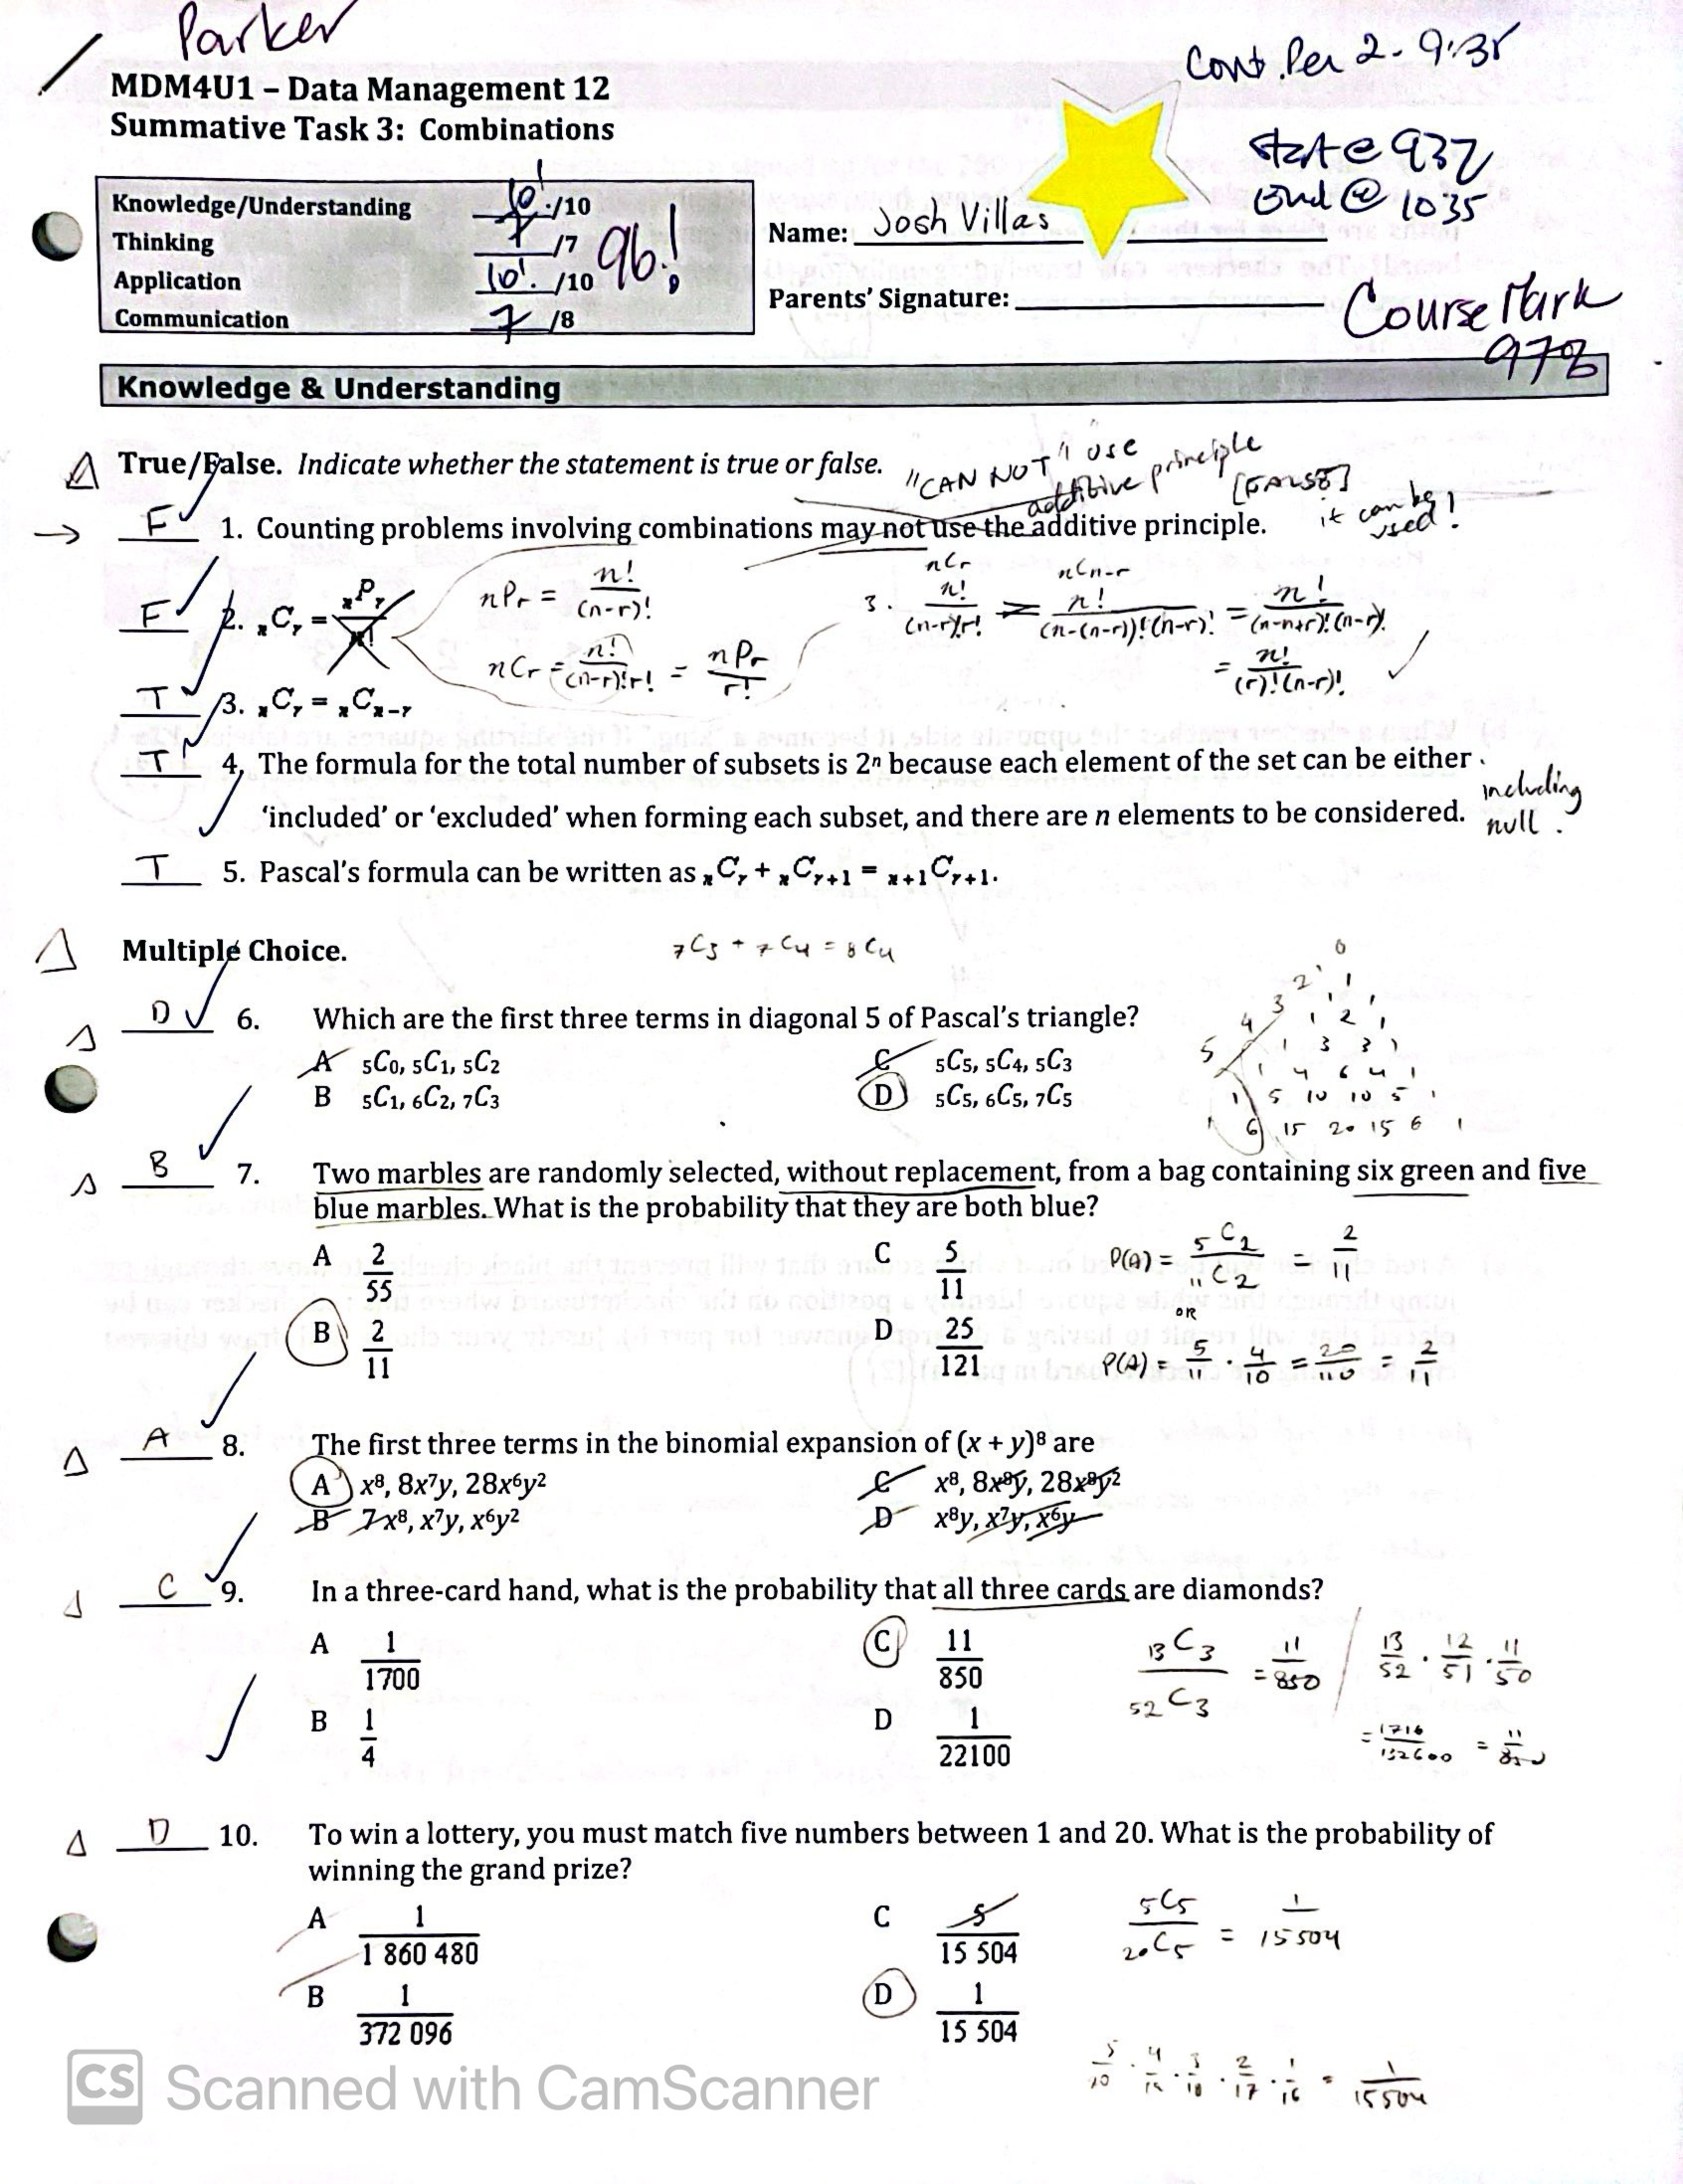 Parker
Cont. Per 2 - 9:35
MDM4U1 – Data Management 12
Summative Task 3: Combinations
Start @ 937
End @ 1035
Knowledge/Understanding 10! /10
Thinking 7 /7
Application 10! /10
Communication 7 /8
96!
Name: Josh Villas
Parents' Signature:
Course Mark
978
Knowledge & Understanding
True/False. Indicate whether the statement is true or false.
"CAN NOT" use
additive principle
[FALSE]
it can be
used!
F 1. Counting problems involving combinations may not use the additive principle.
F 2. ₙCᵣ = ₙPᵣ / n!
nPr = n! / (n-r)!
nCr = n! / (n-r)!r! = nPr / r!
3. nCr nCn-r
n! / (n-r)!r! = n! / (n-(n-r))!(n-r)! = n! / (n-n+r)!(n-r)!
= n! / (r)!(n-r)!
T 3. ₙCᵣ = ₙCₙ₋ᵣ
T 4. The formula for the total number of subsets is 2ⁿ because each element of the set can be either
'included' or 'excluded' when forming each subset, and there are n elements to be considered.
including
null.
T 5. Pascal's formula can be written as ₙCᵣ + ₙCᵣ₊₁ = ₙ₊₁Cᵣ₊₁.
Multiple Choice.
7C3 + 7C4 = 8C4
D 6. Which are the first three terms in diagonal 5 of Pascal's triangle?
A 5C0, 5C1, 5C2
C 5C5, 5C4, 5C3
B 5C1, 6C2, 7C3
D 5C5, 6C5, 7C5
0
2 1 1
3 1 1
4 1 2 1
5 1 3 3 1
1 4 6 4 1
1 5 10 10 5 1
1 6 15 20 15 6 1
B 7. Two marbles are randomly selected, without replacement, from a bag containing six green and five
blue marbles. What is the probability that they are both blue?
A 2/55
C 5/11
B 2/11
D 25/121
P(A) = 5C2 / 11C2 = 2/11
OR
P(A) = 5/11 · 4/10 = 20/110 = 2/11
A 8. The first three terms in the binomial expansion of (x + y)⁸ are
A x⁸, 8x⁷y, 28x⁶y²
C x⁸, 8x⁸y, 28x⁸y²
B 7x⁸, x⁷y, x⁶y²
D x⁸y, x⁷y, x⁶y
C 9. In a three-card hand, what is the probability that all three cards are diamonds?
A 1/1700
C 11/850
B 1/4
D 1/22100
13C3 / 52C3 = 11/850
13/52 · 12/51 · 11/50
= 1716/132600 = 11/850
D 10. To win a lottery, you must match five numbers between 1 and 20. What is the probability of
winning the grand prize?
A 1/1 860 480
C 5/15 504
B 1/372 096
D 1/15 504
5C5 / 20C5 = 1/15504
4 3 2/17 · 1/16 = 1/15504
CS Scanned with CamScanner